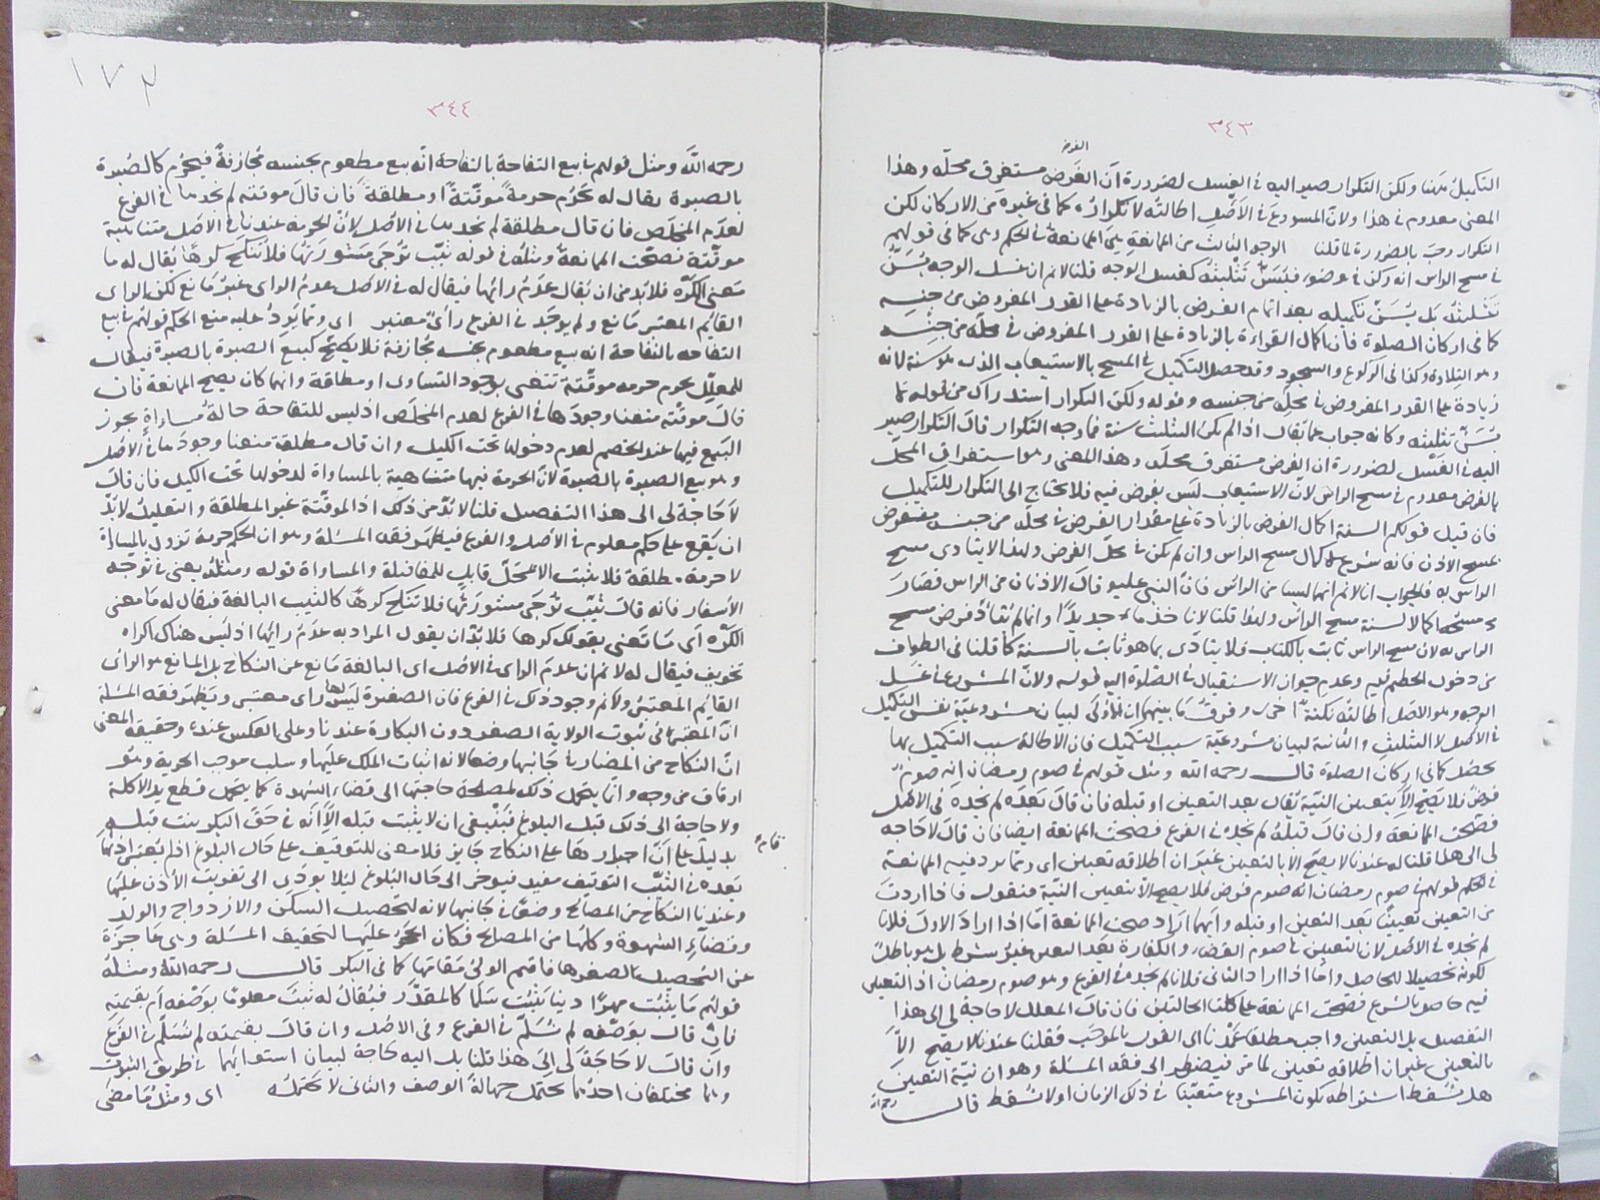 ٣٤٣
الفرض
التكميل ههنا ولكن التكرار صير اليه في الغسل لضرورة ان الفرض مستغرق محله وهذا
المعنى معدوم في هذا ولان المشروع في الاصل اطالته لا تكراره كما في غيره من الاركان لكن
التكرار وجب بالضرورة لما قلنا الوجه الثالث من الممانعة هي الممانعة في الحكم وهي كما في قولهم
في مسح الراس انه ركن في وضوء فيسن تثليثه كغسل الوجه قلنا لا نم ان غسل الوجه يسن
تثليثه بل يسن تكميله بعد اتمام الفرض بالزيادة على القدر المفروض من جنسه
كما في اركان الصلوة فان اكمال القراءة بالزيادة على القدر المفروض في محله من جنسه
وهو التلاوة وكذا في الركوع والسجود وقد حصل التكميل في المسح بالاستيعاب الذي هو سنة لانه
زيادة على القدر المفروض في محله من جنسه وقوله ولكن التكرار استدراك من قوله لا
يسن تثليثه وكانه جواب عما يقال اذا لم يكن التثليث سنة فما وجه التكرار قال التكرار صير
اليه في الغسل لضرورة ان الفرض مستغرق محله وهذا المعنى وهو استغراق المحل
بالفرض معدوم في مسح الراس لان الاستيعاب ليس بفرض فيه فلا يحتاج الى التكرار للتكميل
فان قيل قولكم السنة اكمال الفرض بالزيادة على مقدار الفرض في محله من جنسه منقوض
بمسح الاذن فانه شرع لاكمال مسح الراس وان لم يكن في محل الفرض ولهذا لا يتادى مسح
الراس به فالجواب انا لا نم انهما ليسا من الراس فان النبي عليه قال الاذنان من الراس فصار
مسحه اكمالا لسنة مسح الراس ولهذا قلنا لا ناخذ ماء جديدا وانما لم يتاد فرض مسح
الراس به لان مسح الراس ثابت بالكتاب فلا يتادى بما هو ثابت بالسنة كما قلنا في الطواف
من دخول الحطيم فيه وعدم جواز الاستقبال في الصلوة اليه قوله ولان المشروع في غسل
الوجه وهو الاصل اطالته نكتة اخرى وفرق ما بينهما ان الاولى لبيان مشروعية نفس التكميل
في الاصل لا التثليث والثانية لبيان مشروعية سبب التكميل فان الاطالة سبب التكميل بها
يحصل كما في اركان الصلوة قال رحمه الله ومثل قولهم في صوم رمضان انه صوم
فرض فلا يصح الا بتعيين النية يقال بعد التعيين او قبله فان قال بعده لم نجده في الاصل
فصحت الممانعة وان قال قبله لم نجده في الفرع فصحت الممانعة ايضا فان قال لا حاجة
لي الى هذا قلنا له عندنا لا يصح الا بالتعيين غير ان اطلاقه تعيين اي ومما يرد فيه الممانعة
في الحكم قولهم في صوم رمضان انه صوم فرض فلا يصح الا بتعيين النية فنقول ماذا اردت
من التعيين تعيينا بعد التعيين او قبله وايهما اراد صحت الممانعة اما اذا اراد الاول فلانا
لم نجده في الاصل لان التعيين في صوم القضاء والكفارة بعد التعين غير شرط بل هو باطل
لكونه تحصيلا للحاصل واما اذا اراد الثاني فلانا لم نجده في الفرع وهو صوم رمضان اذ التعين
فيه حاصل بالشرع فصحت الممانعة على كلتا الحالتين فان قال المعلل لا حاجة لي الى هذا
التفصيل بل التعيين واجب مطلقا عدنا الى القول بالموجب فقلنا عندنا لا يصح الا
بالتعيين غير ان اطلاقه تعيين لما مر فيضطر الى فقه المسئلة وهو ان نية التعيين
هل تسقط اشتراطه بكون المشروع متعينا في ذلك الزمان او لا تسقط قال رحمه الله
١٧٢
٣٤٤
رحمه الله ومثل قولهم في بيع التفاحة بالتفاحة انه بيع مطعوم بجنسه مجازفة فيحرم كالصبرة
بالصبرة يقال له تحرم حرمة موقتة او مطلقة فان قال موقتة لم نجدها في الفرع
لعدم المخلص فان قال مطلقة لم نجدها في الاصل لان الحرمة عندنا في الاصل متناهية
موقتة فصحت الممانعة ومثله في قوله ثيب ترجى مشورتها فلا تنكح كرها يقال له ما
معنى الكره فلا بد من ان يقال عدم رائها فيقال له في الاصل عدم الراي غير مانع لكن الراي
القائم المعتبر مانع ولم يوجد في الفرع راي معتبر اي ومما يرد عليه منع الحكم قولهم في بيع
التفاحة بالتفاحة انه بيع مطعوم بجنسه مجازفة فلا يصح كبيع الصبرة بالصبرة فيقال
للمعلل يحرم حرمة موقتة تنتهي بوجود التساوي او مطلقة وايهما كان يصح الممانعة فان
قال موقتة منعنا وجودها في الفرع لعدم المخلص اذ ليس للتفاحة حالة مساواة يجوز
البيع فيها عند الخصم لعدم دخولها تحت الكيل وان قال مطلقة منعنا وجودها في الاصل
وهو بيع الصبرة بالصبرة لان الحرمة فيها متناهية بالمساواة لدخولها تحت الكيل فان قال
لا حاجة لي الى هذا التفصيل قلنا لا بد من ذلك اذ الموقتة غير المطلقة والتعليل لا بد
ان يقع على حكم معلوم في الاصل والفرع فيظهر فقه المسئلة وهو ان الحكم حرمة تزول بالمساواة
لا حرمة مطلقة فلا يثبت الا في محل قابل للمفاضلة والمساواة قوله ومثله يعني في توجه
الاسفسار فانه قال ثيب ترجى مشورتها فلا تنكح كرها كالثيب البالغة فيقال له ما معنى
الكره اي ما تعني بقولك كرها فلا بد ان يقول المراد به عدم رائها اذ ليس هناك اكراه
تخويف فيقال له لا نم ان عدم الراي في الاصل اي البالغة مانع عن النكاح بل المانع هو الراي
القائم المعتبر ولا نم وجود ذلك في الفرع فان الصغيرة ليس لها راي معتبر ويظهر فقه المسئلة
ان المعتبر في ثبوت الولاية الصغر دون البكارة عندنا وعلى العكس عنده وحقيقة المعنى
ان النكاح من المضار في جانبها وضعا لانه اثبات الملك عليها وسلب موجب الحرية وهو
ارقاق من وجه وانما يتحمل ذلك لمصلحة حاجتها الى قضاء الشهوة كما يتحمل قطع يد الاكلة
ولا حاجة الى ذلك قبل البلوغ فينبغي ان لا يثبت قبله الا انه في حق البكر يثبت قبله
بدليل على ان اجبارها على النكاح جايز فلا معنى للتوقيف على حال البلوغ اذ لم يعتبر اذنها
بعده في الثيب التوقيف مفيد فيوخر الى حال البلوغ ليلا يودي الى تفويت الاذن عليها
وعندنا النكاح من المصالح وضعا في جانبها لانه لتحصيل السكن والازدواج والولد
وقضاء الشهوة وكلها من المصالح فكان الحجر عليها لتحقيق المسئلة وهي عاجزة
عن التحصيل لصغرها فاقيم الولي مقامها كما في البكر قال رحمه الله ومثله
قولهم ما يثبت مهرا دينا يثبت سلما كالمقدر فيقال له ثبت معلوما بوصفه ام بقيمته
فان قال بوصفه لم نسلم في الفرع وفي الاصل وان قال بقيمته لم نسلم في الفرع
وان قال لا حاجة لي الى هذا قلنا بل اليه حاجة لبيان استوائهما في طريق الثبوت
وهما مختلفان احدهما يحتمل جهالة الوصف والثاني لا يحتمله اي ومثل ما مضى